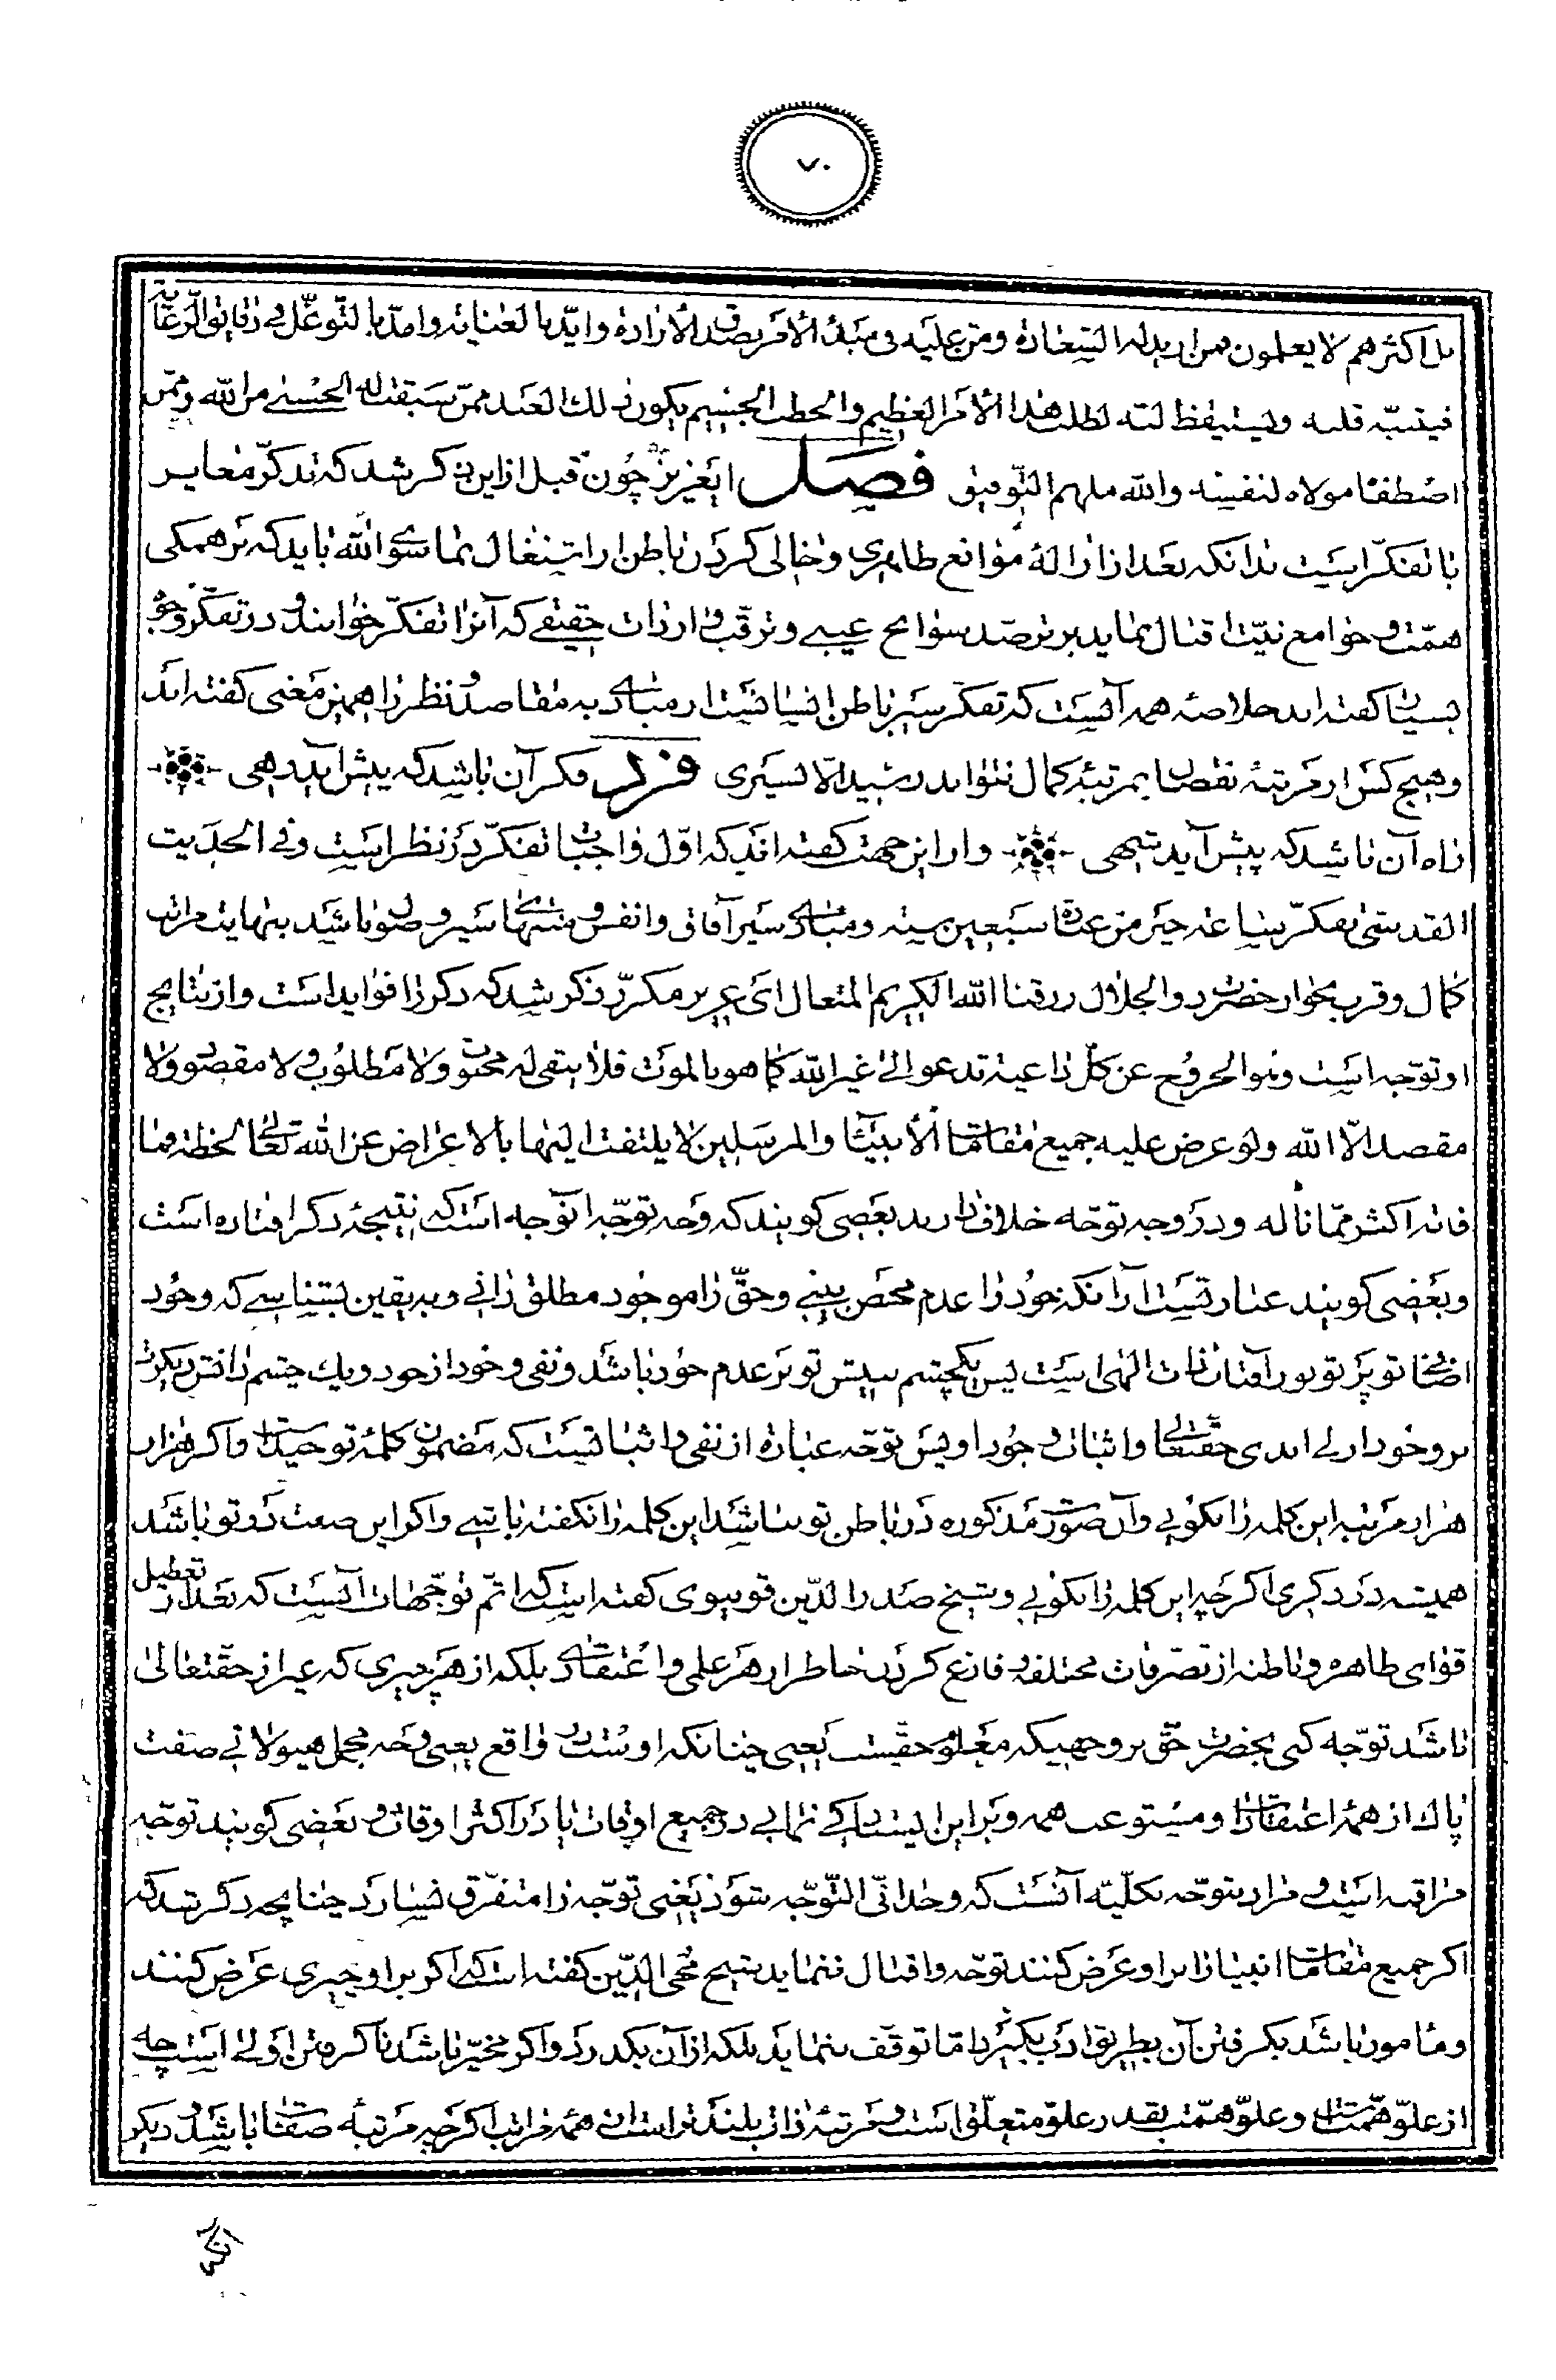 ۷۰
بل اکثرهم لا یعلمون فمن ارید له السعادة ومن علیه فی مبدأ الامر بصدق الارادة وایّد بالعنایة وامدّ بالتوغّل فی دقایق الرعایة
فیتنبّه قلبه ویستیقظ لبّه لطلب هذا الامر العظیم والخطب الجسیم یکون ذلک العبد ممّن سبقت له الحسنی من الله وممّن
اصطفا مولاه لنفسه والله ملهم التوفیق فصل ایعزیز چون قبل از این ذکر شد که تذکّر مغایر
با تفکّر است بدانکه بعد از ازالهٔ موانع ظاهری وخالی کردن باطن از اشتغال بماسوی الله باید که بر همکی
همّت و جوامع نیّت اقبال نماید بر ترصّد سوانح غیبی وترقّب واردات حقیقی که آنرا تفکّر خوانند و در تفکّر وجوه
بسیار گفته اند خلاصه همه آنست که تفکر سیر باطن انسانیست از مبادی به مقاصد و نظر را همین معنی کفته اند
وهیچ کس از مرتبهٔ نقصان بمرتبهٔ کمال نتواند رسید الّا بسیری فرد فکر آن باشد که پیش آید رهی
راه آن باشد که پیش آید شهی واز این جهت کفته اند که اوّل واجبات تفکّر و نظر است وفی الحدیث
القدسی تفکّر ساعة خیر من عبادة سبعین سنه ومبادی سیر آفاق وانفس و منتهای سیر وصول باشد بنهایت مراتب
کمال وقرب بجوار حضرت ذوالجلال رزقنا الله الکریم المتعال ای عزیز مکرّر ذکر شد که ذکر را فواید است واز نتایج
او توجّه است وهو الخروج عن کلّ داعیة تدعو الی غیر الله کما هو بالموت فلا یبقی له محبوب ولا مطلوب ولا مقصود ولا
مقصد الّا الله ولو عرض علیه جمیع مقامات الانبیاء والمرسلین لا یلتفت الیها بالاعراض عن الله تعالی لحظة فما
فاته اکثر ممّا ناله ودر وجه توجّه خلاف دارند بعضی کویند که وجه توجّه انوجه است که نتیجهٔ ذکر افتاده است
وبعضی کویند عبارتست از آنکه خود را عدم محض بینی وحقّ را موجود مطلق دانی وبه یقین بشناسی که وجود
اضافی تو پرتو نور آفتاب ذات الهی است پس یکچشم بینش تو بر عدم خود باشد ونفی وخود از خود ویک چشم دانش دیکرت
بر وجود ازلی ابدی حقتعالی واثبات وجود او پس توجّه عباره از نفی و اثباتیست که مضمون کلمهٔ توحید است واکر هزار
هزار مرتبه این کلمه را بکویی وآن صورت مذکوره در باطن تو نباشد این کلمه را نکفته باشی واکر این صفت در تو باشد
همیشه در ذکری اکرچه این کلمه را نکویی وشیخ صدرالدّین قونیوی کفته است که اتمّ توجّهات آنست که بعد از تعطیل
قوای ظاهره وباطنه از تصرفات مختلفه و فارغ کردن خاطر از هر علمی واعتقادی بلکه از هر چیزی که غیر از حقتعالی
باشد توجّه کنی بحضرت حقّ بر وجهیکه معلوم حقست یعنی چنانکه اوست در واقع یعنی بوجه مجمل هیولانی صفت
پاک از همهٔ اعتقادات ومستوعب همه وبر این ایستادکی نمایی در جمیع اوقات یا در اکثر اوقات و بعضی کویند توجّه
مراقبه است و مراد بتوجّه بکلّیه آنست که وحدانی التّوجّه شود یعنی توجّه را متفرّق نسازد چنانچه ذکر شد که
اکر جمیع مقامات انبیا را بر او عرض کنند توجّه واقبال ننماید شیخ محی الدّین کفته است که اکر بر او چیزی عرض کنند
ومأمور باشد بکرفتن آن بطریق ادب بکیرد امّا توقّف ننماید بلکه از آن بکذرد واکر مخیّر باشد ناکرفتن اولی است چه
از علوّ همّت است وعلوّ همّت بقدر علوّ متعلّق است و مرتبهٔ ذات بلندتر است از همهٔ مراتب اکرچه مرتبهٔ صفات باشد و دیکر